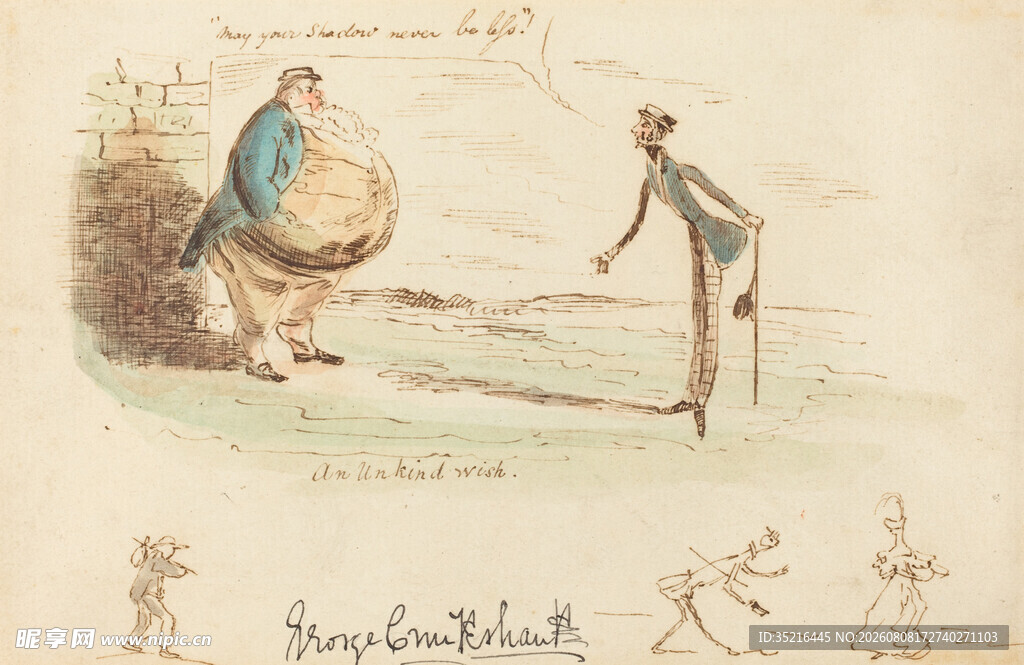 "May your Shadow never be less"!
An Unkind wish.
George Cruikshank
昵享网 www.nipic.cn
ID:35216445 NO:20260808172740271103